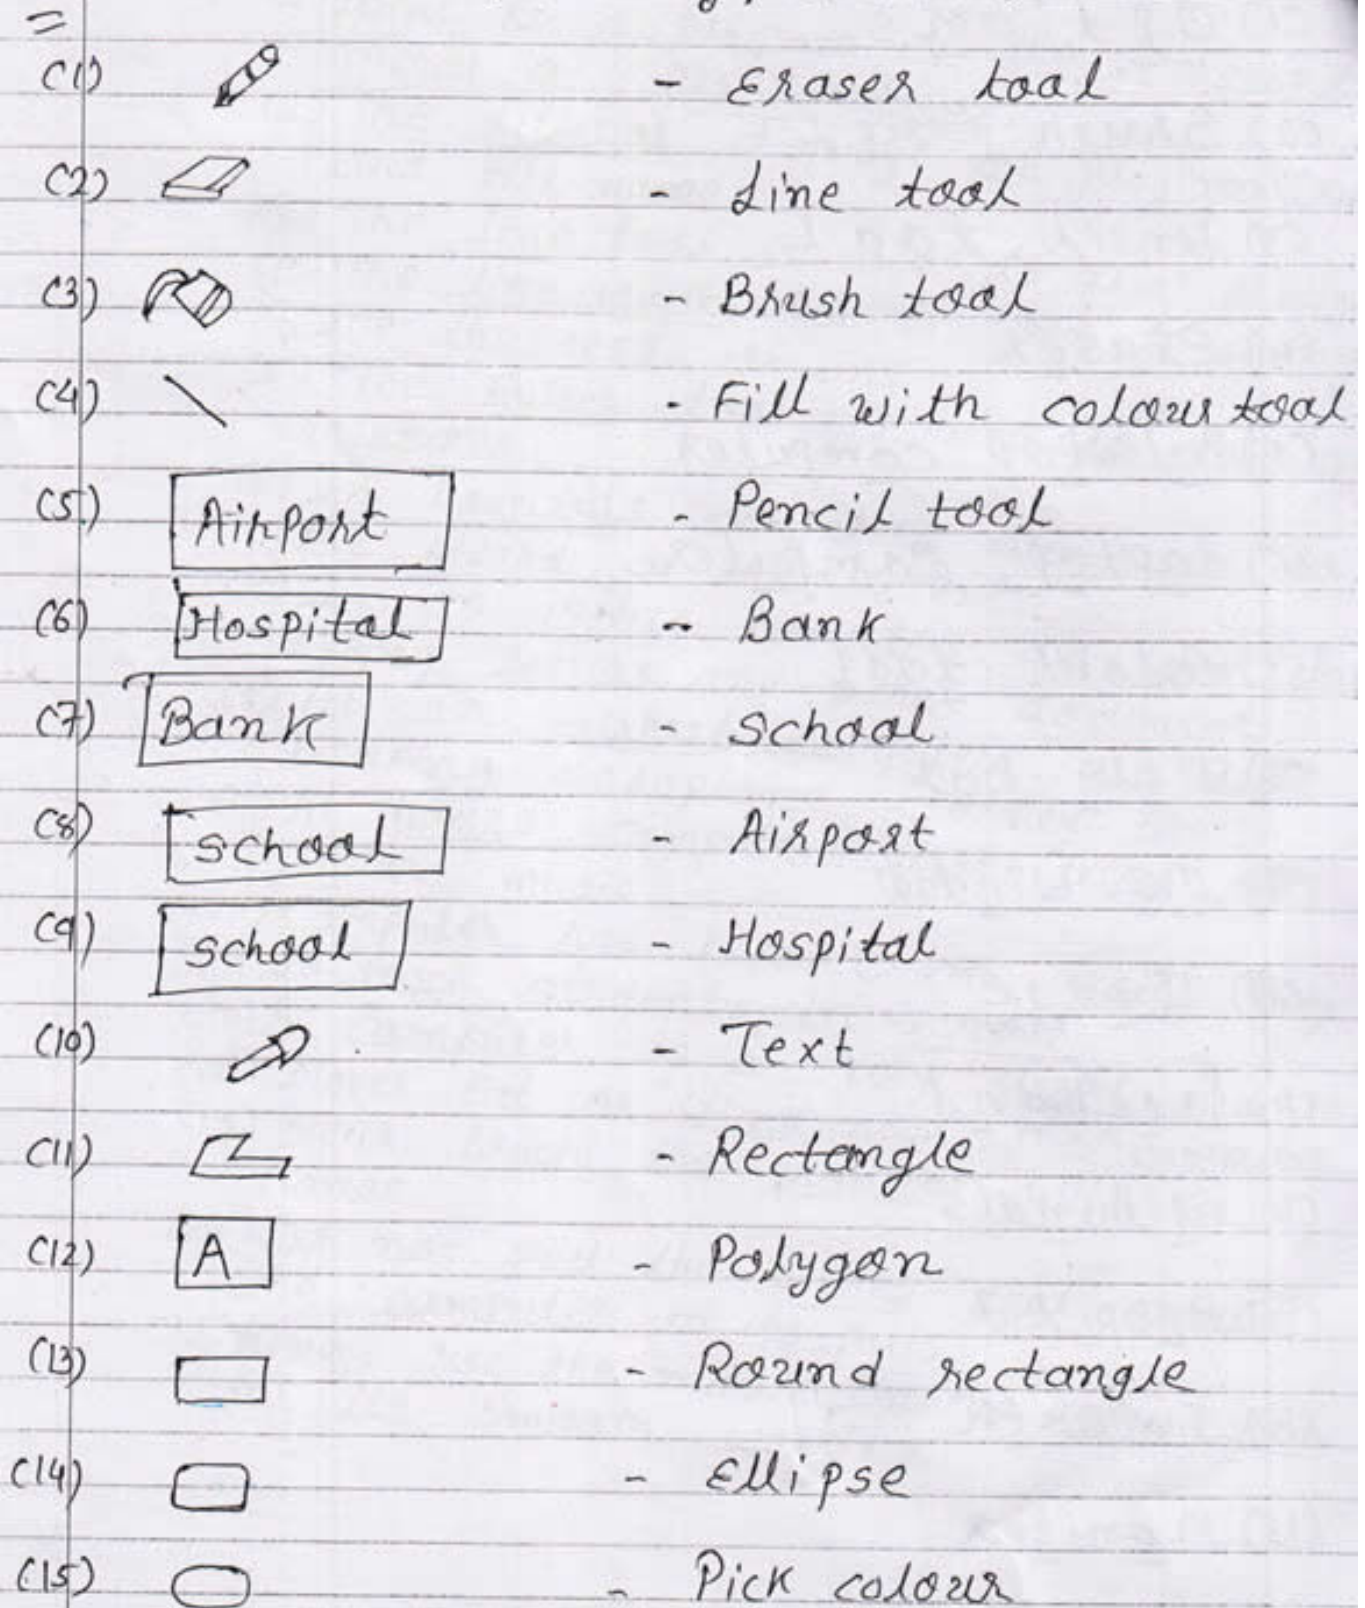 (1) - Eraser tool
(2) - Line tool
(3) - Brush tool
(4) - Fill with colour tool
(5) Airport - Pencil tool
(6) Hospital - Bank
(7) Bank - School
(8) School - Airport
(9) School - Hospital
(10) - Text
(11) - Rectangle
(12) A - Polygon
(13) - Round rectangle
(14) - Ellipse
(15) - Pick colour